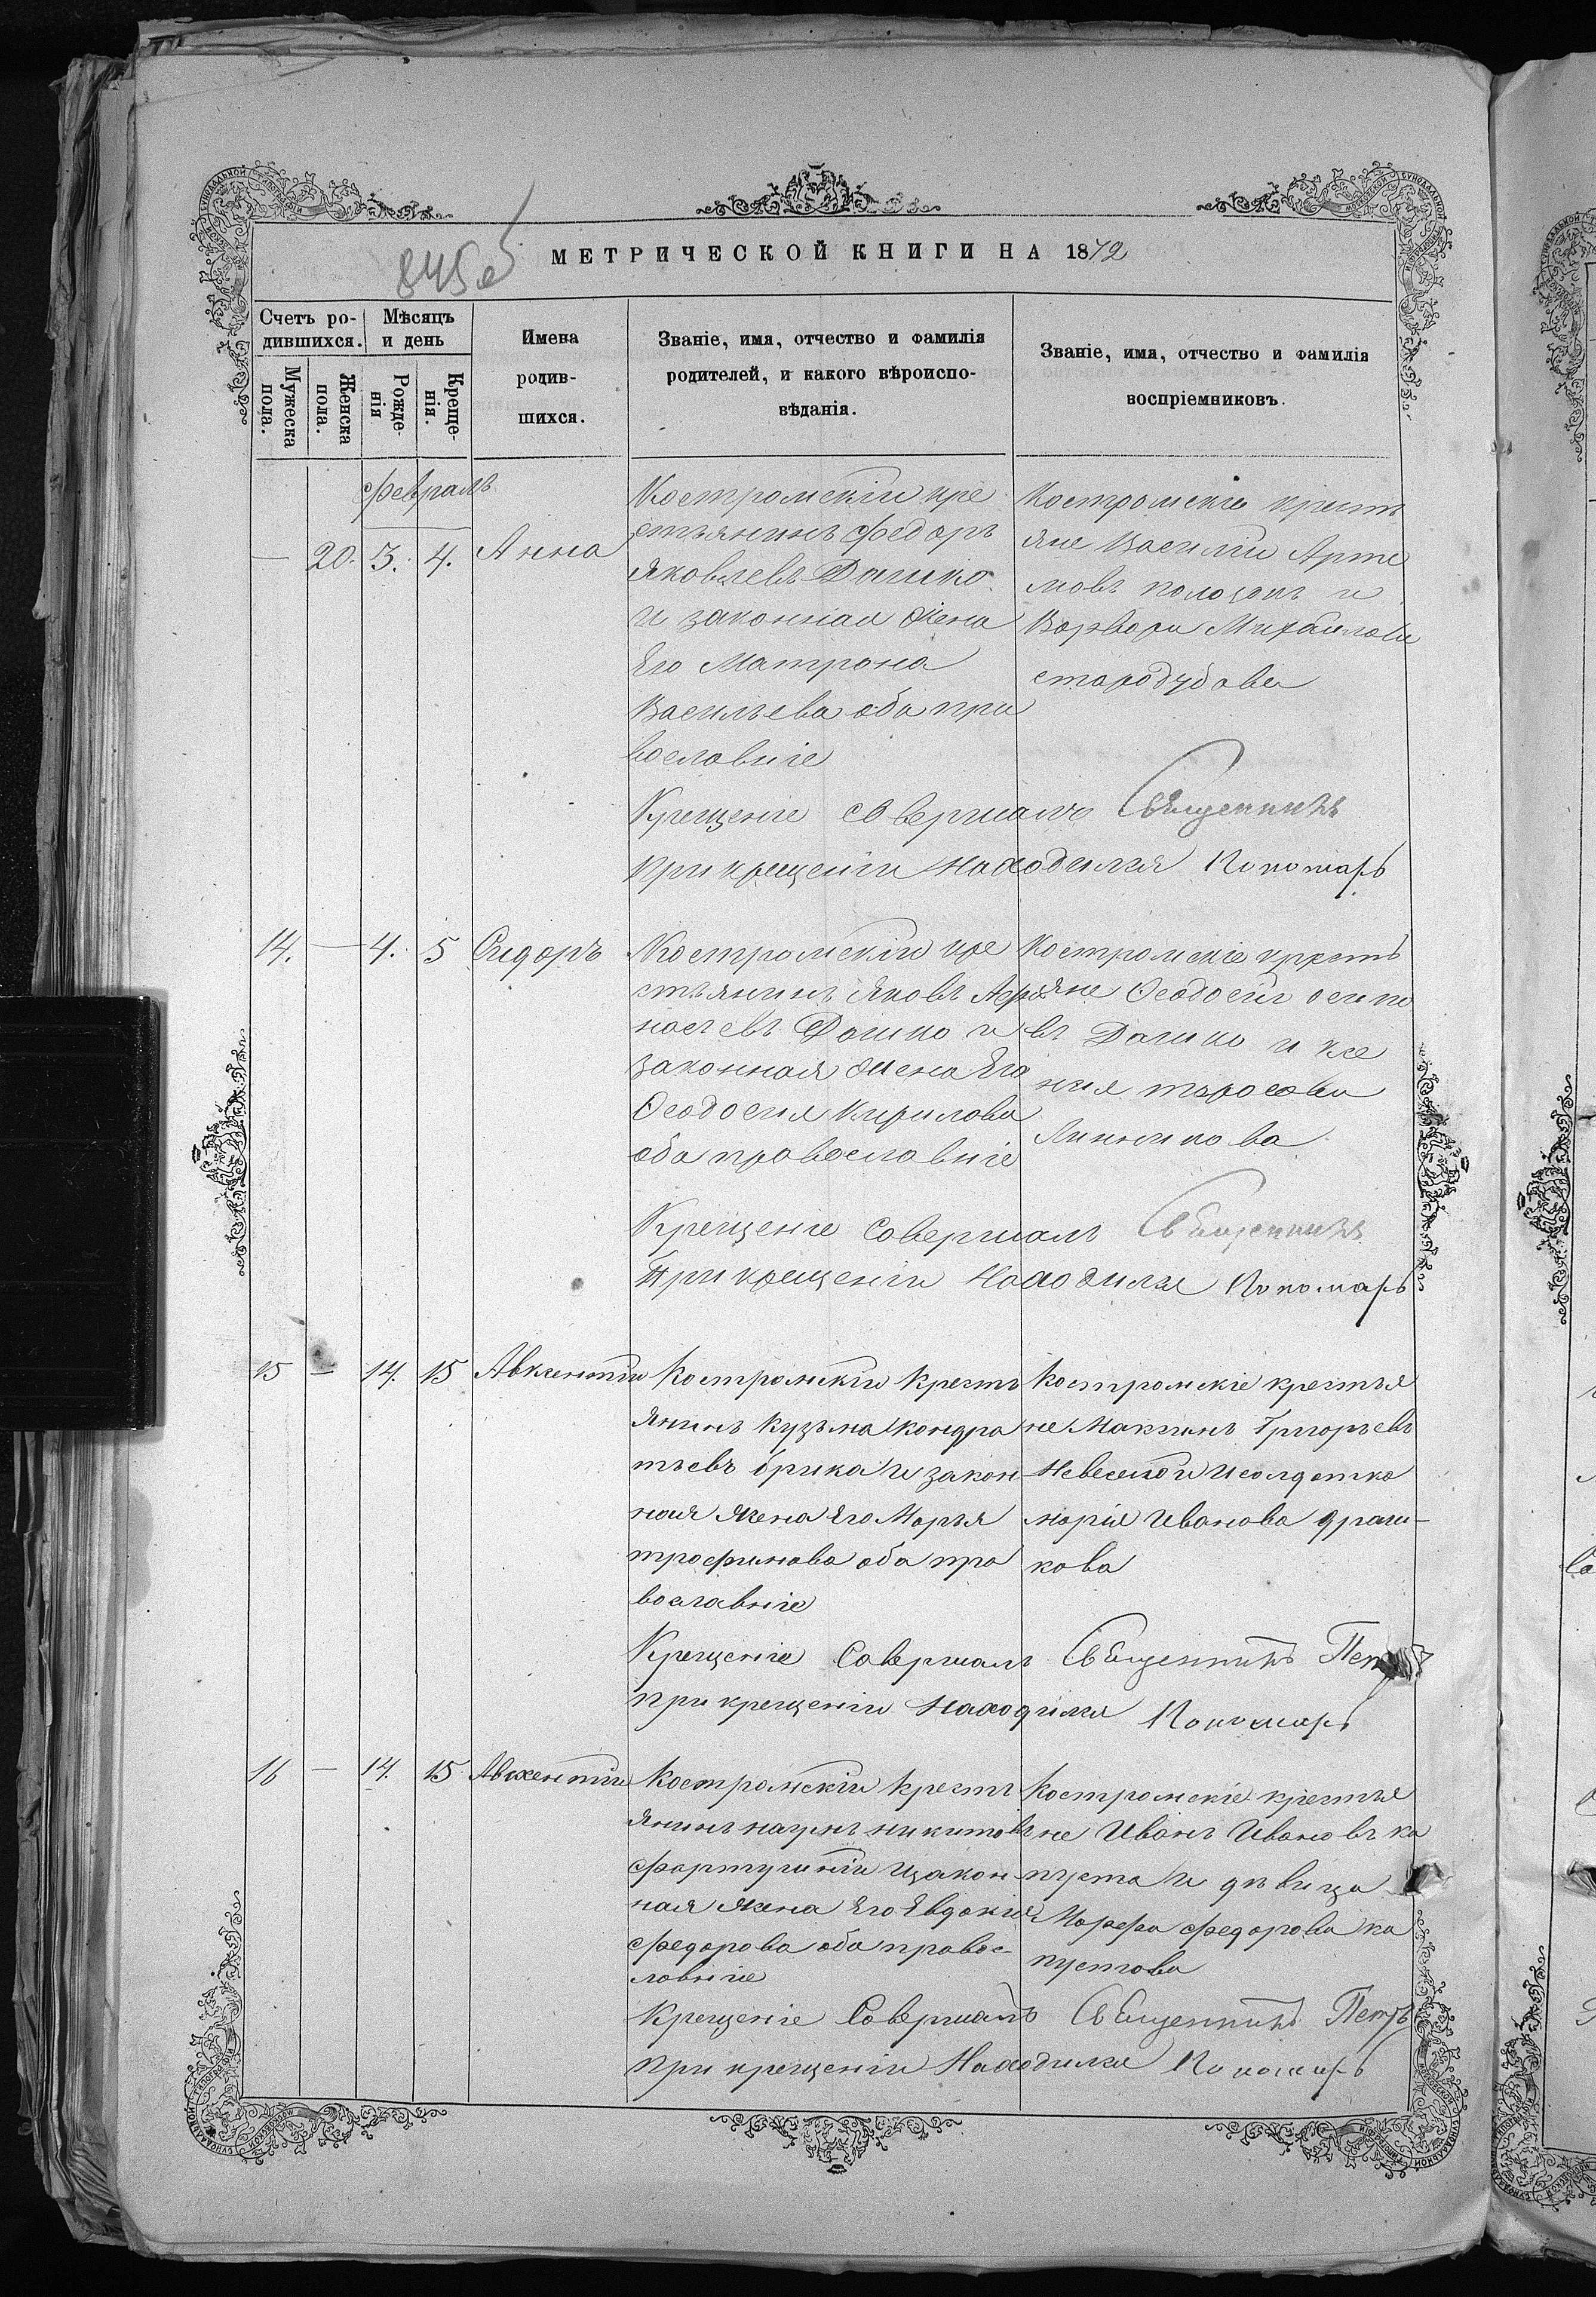 МЕТРИЧЕСКОЙ КНИГИ НА 1872
845 об
Счетъ ро-
дившихся.
Мѣсяцъ
и день
Мужеска
пола.
Женска
пола.
Рожде-
нія
Креще-
нія.
Имена
родив-
шихся.
Званіе, имя, отчество и фамилія
родителей, и какого вѣроиспо-
вѣданія.
Званіе, имя, отчество и фамилія
воспріемниковъ.
февраль
— 20. 3. 4. Анна
Костромскій кре
стьянинъ Федоръ
Яковлевъ Дашко
и законная жена
Его Матрона
Васильева оба пра
вославніе
Костромскіе кресть
яне Василій Арте
мовъ
и
Варвара Михайлова
стародубова
Крещеніе совершалъ Священникъ
при крещеніи находился Пономарь
14. — 4. 5 Сидоръ
Костромскій кре
стьянинъ Яковъ Афа
насьевъ Дашко и
законная жена Его
Феодосия Кирилова
оба православніе
Костромскіе кресть
яне Феодосій осипо
въ Дашко и ксе
ния тарасова
Линникова
Крещеніе Совершалъ Священникъ
При крещеніи Находился Пономарь
15 — 14. 15 Авксентій
Костромскій Кресть
янинъ Кузьма Кондра
тьевъ брика и закон
ная жена Его Марья
трофимова оба пра
вославніе
Костромскіе крестья
не Максимъ Григорьевъ
Невеселой и солдатка
марія Иванова драш-
кова
Крещеніе Совершалъ Священникъ Петръ
При крещеніи Находился Пономарь
16 — 14. 15 Авксентій
Костромскій Кресть
янинъ наумъ никитовъ
и закон
ная жена Его Евдокия
федорова оба правос-
лавніе
Костромскіе крестья
не Иванъ Ивановъ ка
пуста и дѣвица
Марфа федорова ка
пустова
Крещеніе Совершалъ Священникъ Петръ
При крещеніи Находился Пономарь